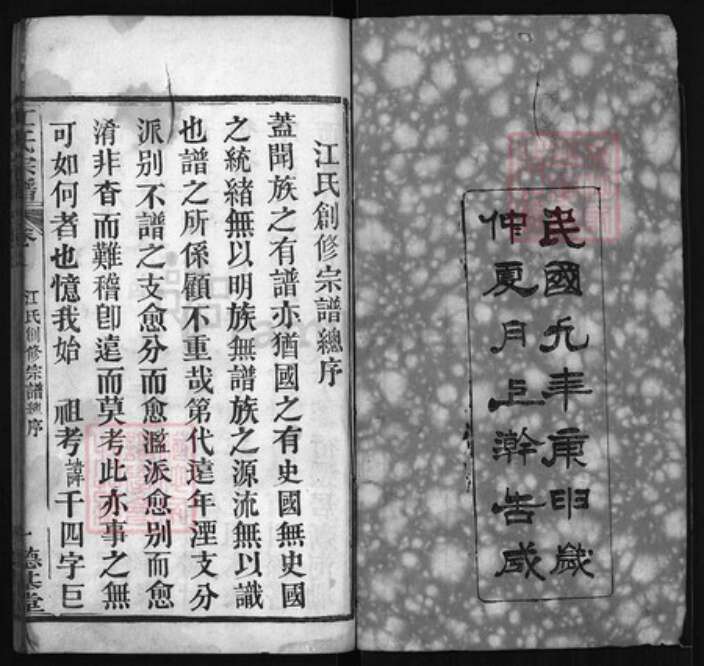 民國九年庚申歲
仲夏月上澣告成
江氏創修宗譜總序
蓋聞族之有譜亦猶國之有史國無史國
之統緒無以明族無譜族之源流無以識
也譜之所係顧不重哉第代遠年湮支分
派别不譜之支愈分而愈濫派愈别而愈
淆非杳而難稽卽遠而莫考此亦事之無
可如何者也憶我始 祖考諱千四字巨
江氏宗譜 卷 江氏創修宗譜總序 一 德基堂